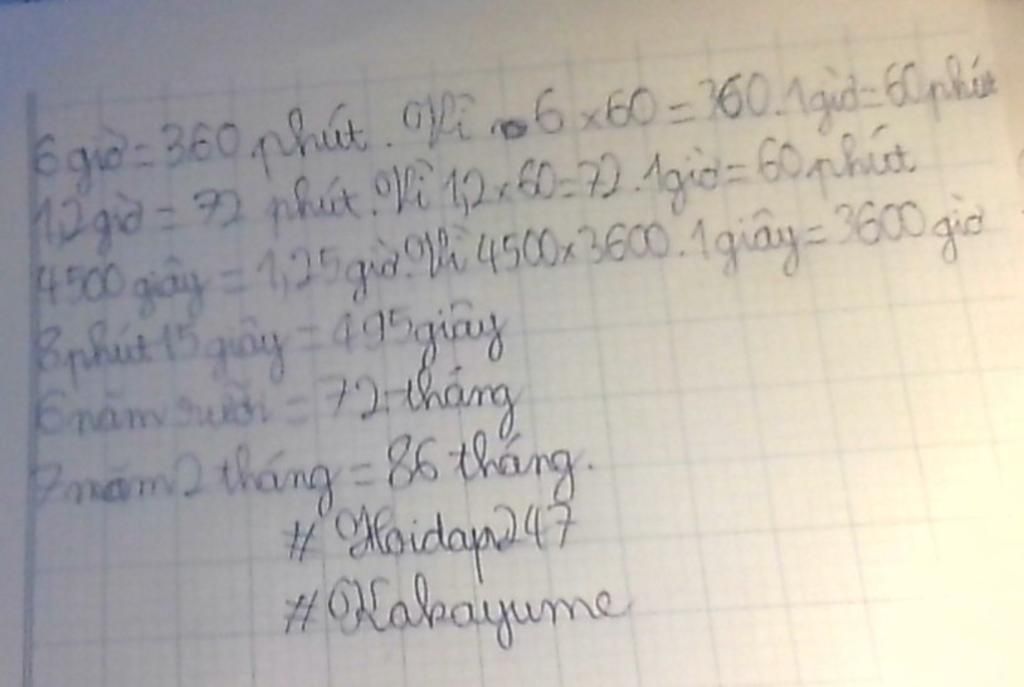 6 giờ = 360 phút. Vì 6 x 60 = 360. 1 giờ = 60 phút
1,2 giờ = 72 phút. Vì 1,2 x 60 = 72. 1 giờ = 60 phút
4500 giây = 1,25 giờ. Vì 4500 x 3600. 1 giây = 3600 giờ
8 phút 15 giây = 495 giây
6 năm rưỡi = 72 tháng
7 năm 2 tháng = 86 tháng.
# Hoidap247
# Kakayume